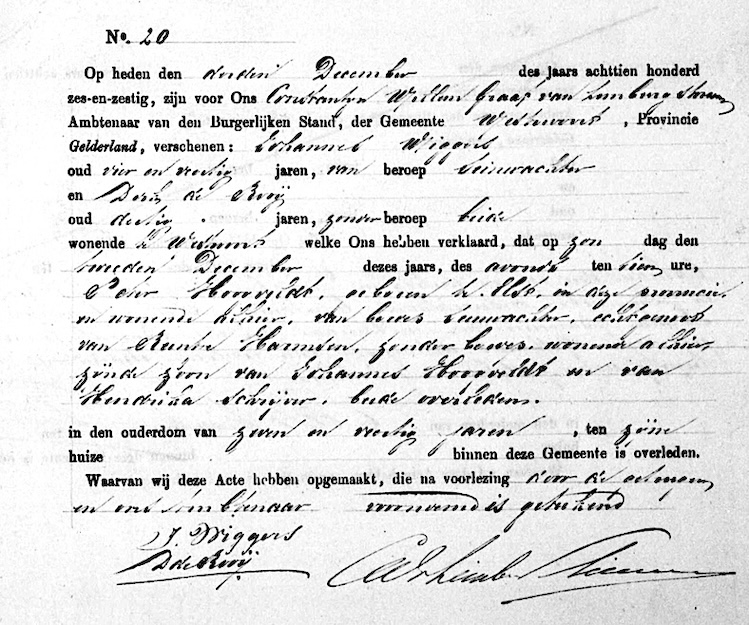 No. 20
Op heden den derden December des jaars achttien honderd
zes-en-zestig, zijn voor Ons Constantijn Willem Graaf van Limburg Stirum
Ambtenaar van den Burgerlijken Stand, der Gemeente Westervoort, Provincie
Gelderland, verschenen: Johannes Wiggers
oud vier en veertig jaren, van beroep seinwachter
en Derk de Rooij
oud dertig jaren, zonder beroep beide
wonende te Westervoort welke Ons hebben verklaard, dat op zon dag den
tweeden December dezes jaars, des avonds ten tien ure,
Peter Hoogveldt, geboren te Elst, in deze provincie
en wonende alhier, van beroep seinwachter, echtgenoot
van Harmsen, zonder beroep, wonende alhier,
zijnde zoon van Johannes Hoogveldt en van
Hendrika Schrijver, beide overleden.
in den ouderdom van zeven en veertig jaren, ten zijne
huize binnen deze Gemeente is overleden.
Waarvan wij deze Acte hebben opgemaakt, die na voorlezing door de getuigen
en ons Ambtenaar voornoemd is geteekend
J. Wiggers
D de Rooij